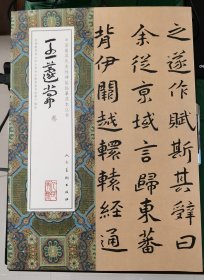 之遂作賦斯其辭曰
余從京域言歸東蕃
背伊闕越轘轅經通
王蘧常
卷
人民美术出版社